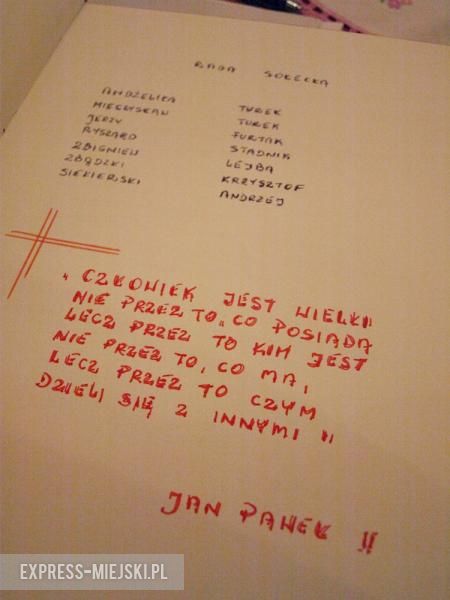 RADA SOŁECKA
ANDŻELIKA TUREK
MIECZYSŁAW TUREK
JERZY FURTAK
RYSZARD STADNIK
ZBIGNIEW LEJBA
ZBĄDZKI KRZYSZTOF
SIEKIERSKI ANDRZEJ
„ CZŁOWIEK JEST WIELKI
NIE PRZEZ TO, CO POSIADA
LECZ PRZEZ TO KIM JEST
NIE PRZEZ TO, CO MA,
LECZ PRZEZ TO CZYM
DZIELI SIĘ Z INNYMI "
JAN PAWEŁ II
EXPRESS-MIEJSKI.PL